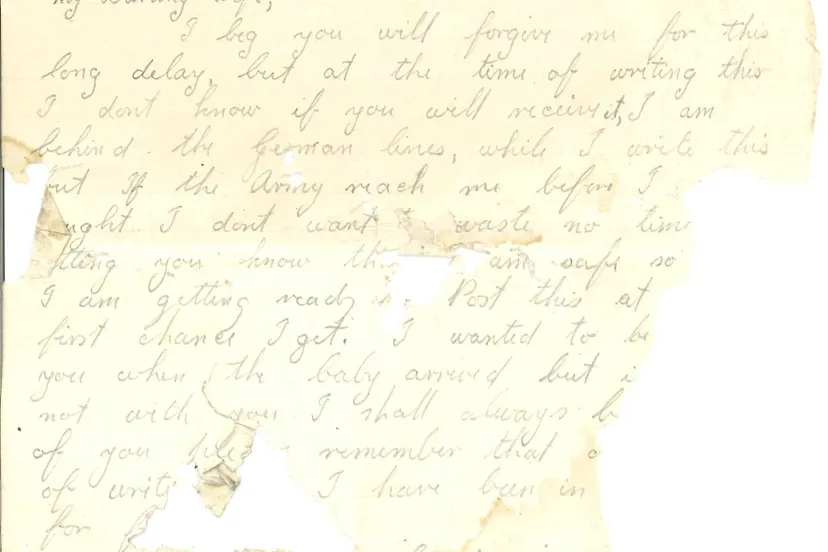 My darling wife,
I beg you will forgive me for this
long delay, but at the time of writing this
I dont know if you will receive it, I am
behind the German lines, while I write this
but If the Army reach me before I
ught I dont want to waste no time
tting you know I am safe so
I am getting ready Post this at
first chance I get. I wanted to be
you when the baby arrived but i
not with you I shall always b
of you remember that
of writi I have been in
for